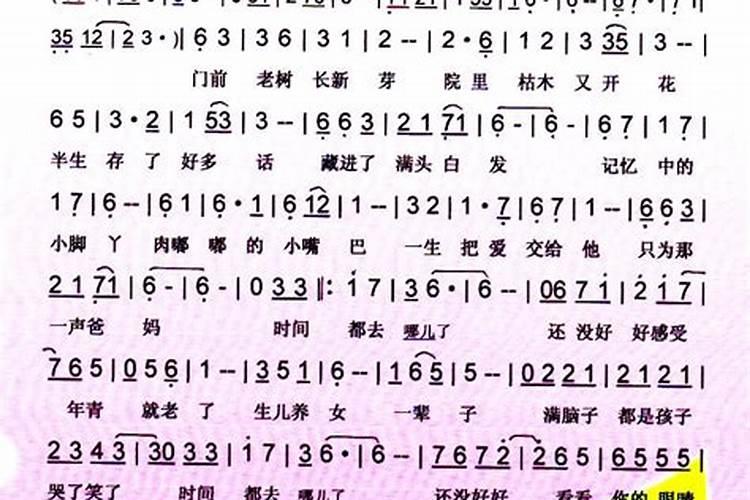 35 12 | 2 3 · )| 6 3 | 3 6 | 3 1 | 2 -- | 2 · 6 | 1 2 | 3 35 | 3 -- |
门前 老树 长新 芽 院 里 枯木 又 开 花
6 5 | 3 · 2 | 1 53 | 3 -- | 6 6 3 | 2 1 71 | 6 - | 6 - | 6 7 | 1 7 |
半生 存 了 好多 话 藏进了 满头 白 发 记忆 中的
1 7 | 6 -- | 6 1 | 6 · 1 | 6 12 | 1 -- | 3 2 | 1 · 7 | 6 7 | 1 -- | 6 6 3 |
小脚 丫 肉嘟 嘟 的 小嘴 巴 一生 把 爱 交给 他 只为那
2 1 71 | 6 - | 6 - | 0 3 3 ‖: i 7 | 3 6 · | 6 -- | 06 7 i | 2 i 7 |
一声爸 妈 时间 都去 哪儿了 还 没好 好感受
7 6 5 | 0 5 6 | 1 -- | 3 5 1 | 6 -- | 1 6 5 | 5 -- | 0 2 2 1 | 2 1 2 1 |
年青 就老 了 生儿养 女 一辈 子 满脑子 都是孩子
2 3 4 3 | 30 3 3 | i 7 | 3 6 · | 6 -- | 7 6 7 2 | 2 6 5 | 6 5 5 5 |
哭了笑了 时间 都去 哪儿了 还没好好 看看 你的 眼睛